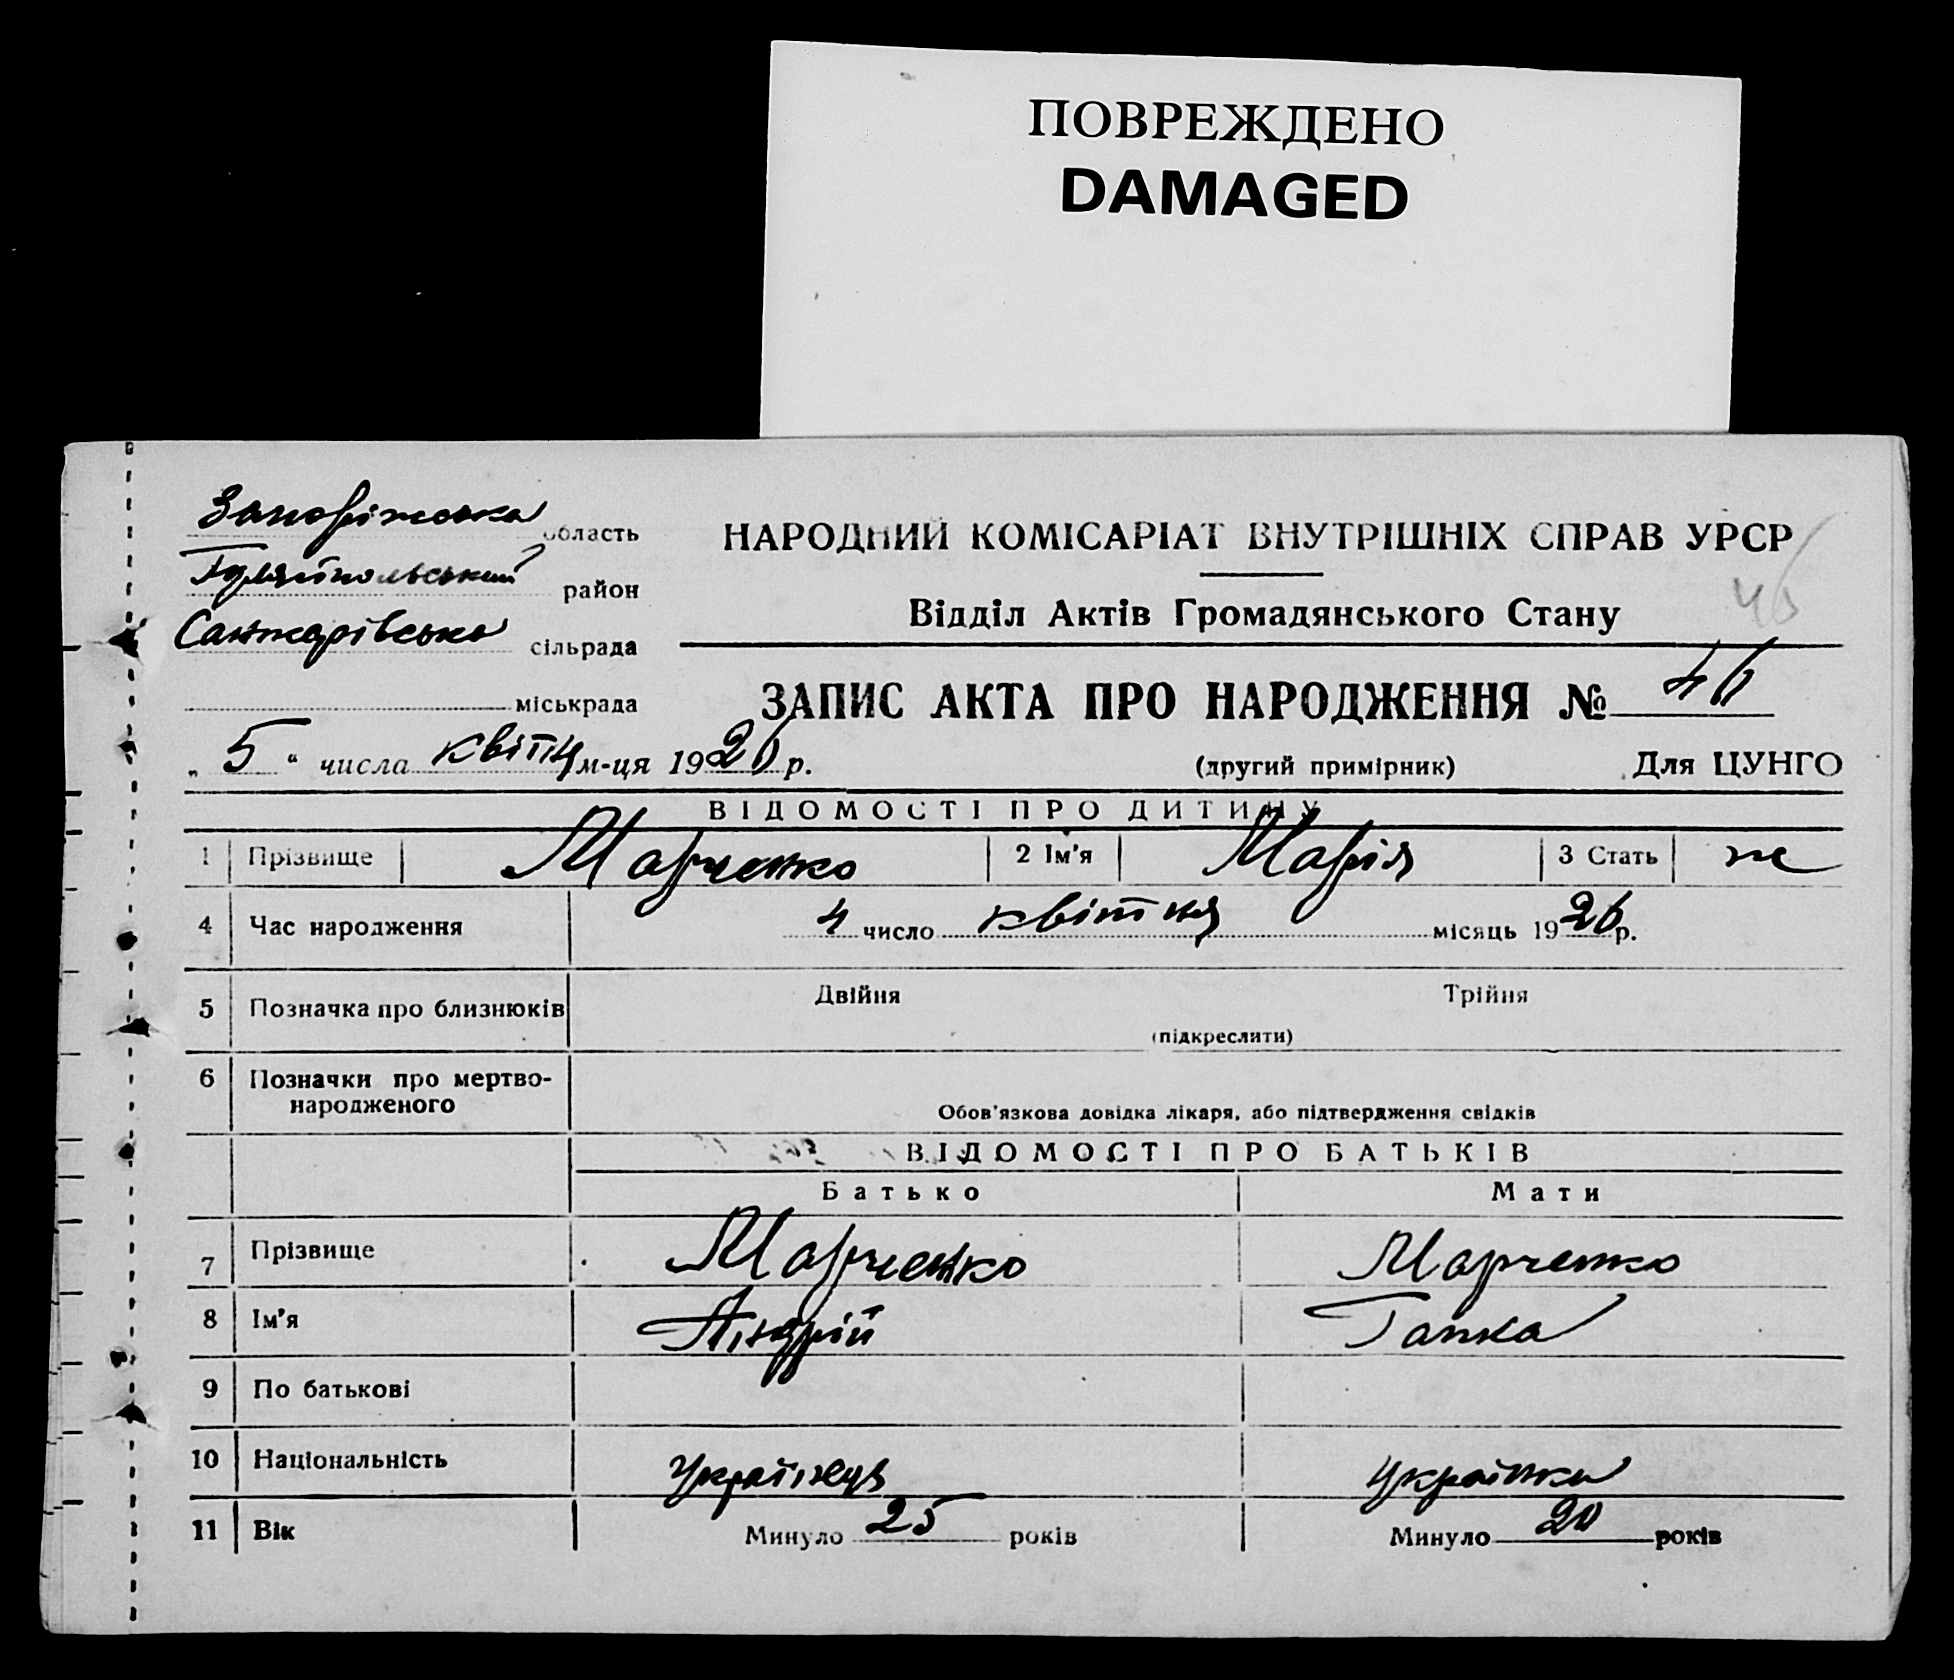 ПОВРЕЖДЕНО
DAMAGED
Запорізська область
Гуляйпольський район
Санжарівська сільрада
міськрада
НАРОДНИЙ КОМІСАРІАТ ВНУТРІШНІХ СПРАВ УРСР
46
Відділ Актів Громадянського Стану
ЗАПИС АКТА ПРО НАРОДЖЕННЯ № 46
„5“ числа квітня м-ця 1926 р.
(другий примірник) Для ЦУНГО
ВІДОМОСТІ ПРО ДИТИНУ
1 Прізвище Марченко 2 Ім'я Марія 3 Стать ж
4 Час народження 4 число квітня місяць 1926 р.
5 Позначка про близнюків Двійня Трійня
(підкреслити)
6 Позначки про мертво-
народженого
Обов'язкова довідка лікаря, або підтвердження свідків
ВІДОМОСТІ ПРО БАТЬКІВ
Батько Мати
7 Прізвище Марченко Марченко
8 Ім'я Андрій Гапка
9 По батькові
10 Національність українець українка
11 Вік Минуло 25 років Минуло 20 років